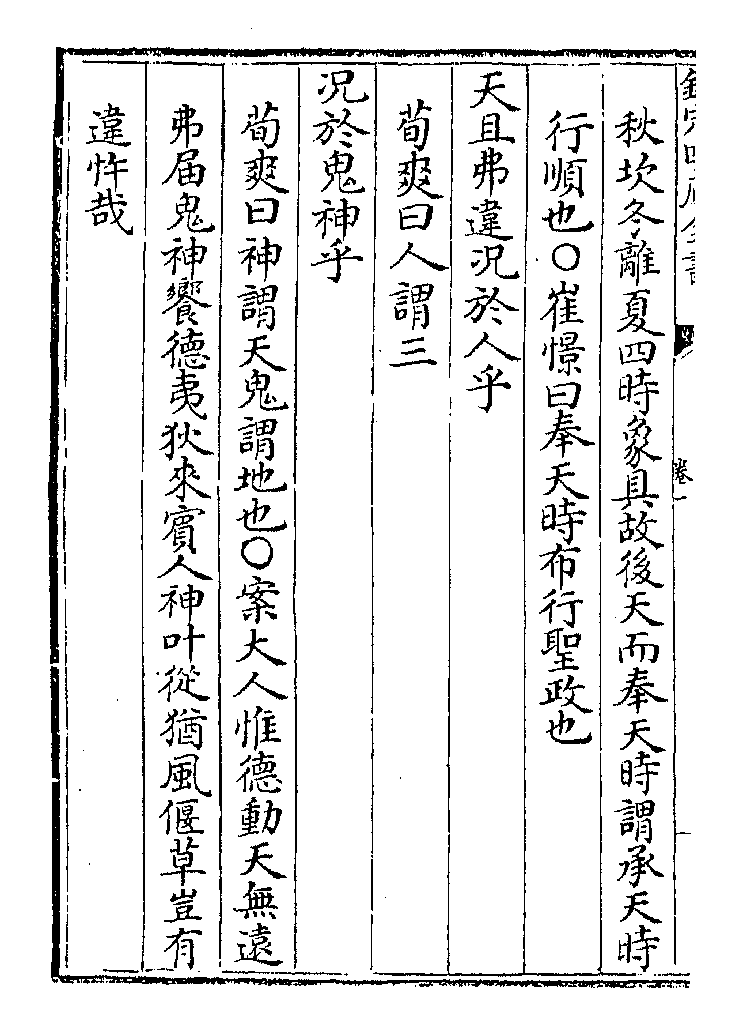 秋坎冬離夏四時象具故後天而奉天時謂承天時
行順也〇崔憬曰奉天時布行聖政也
天且弗違况於人乎
荀爽曰人謂三
况於鬼神乎
荀爽曰神謂天鬼謂地也〇案大人惟德動天無遠
弗届鬼神饗德夷狄來賓人神叶從猶風偃草豈有
違忤哉
卷一